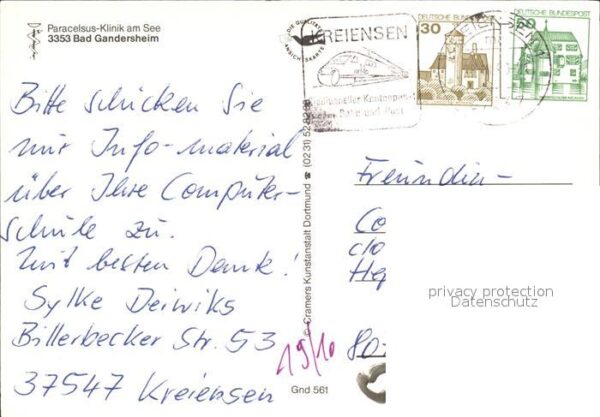 Paracelsus-Klinik am See
3353 Bad Gandersheim
DIE QUALITÄTS
ANSICHTSKARTE
KREIENSEN
Traditioneller Knotenpunkt
von Bahn und Post
DEUTSCHE BUNDESPOST
30
DEUTSCHE BUNDESPOST
50
Bitte schicken Sie
mir Info-material
über Ihre Computer-
schule zu.
Mit besten Dank!
Sylke
Billerbecker Str. 53
37547 Kreiensen
© Cramers Kunstanstalt Dortmund ☎ (0231) 52 82 08
19/10
Gnd 561
Freundin-
Co
c/o
He
80
privacy protection
Datenschutz